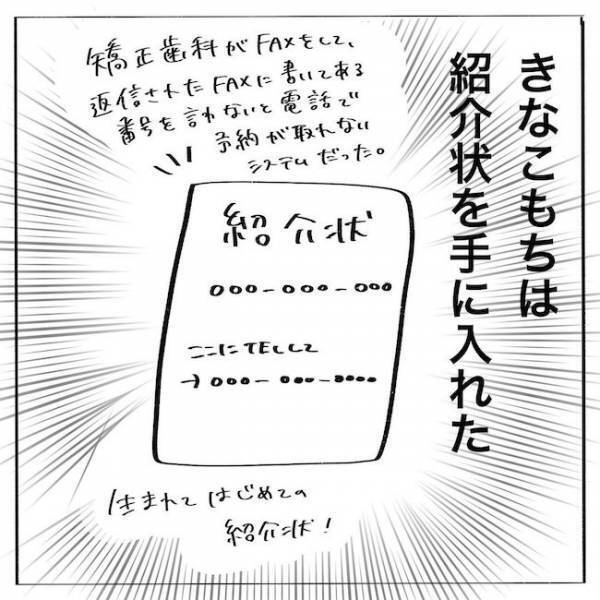 きなこもちは
紹介状を手に入れた
矯正歯科がFAXをして、
返信されたFAXに書いてある
番号を言わないと電話で
予約が取れない
システムだった。
紹介状
000-000-000
ここにTELして
→000-000-0000
生まれてはじめての
紹介状！